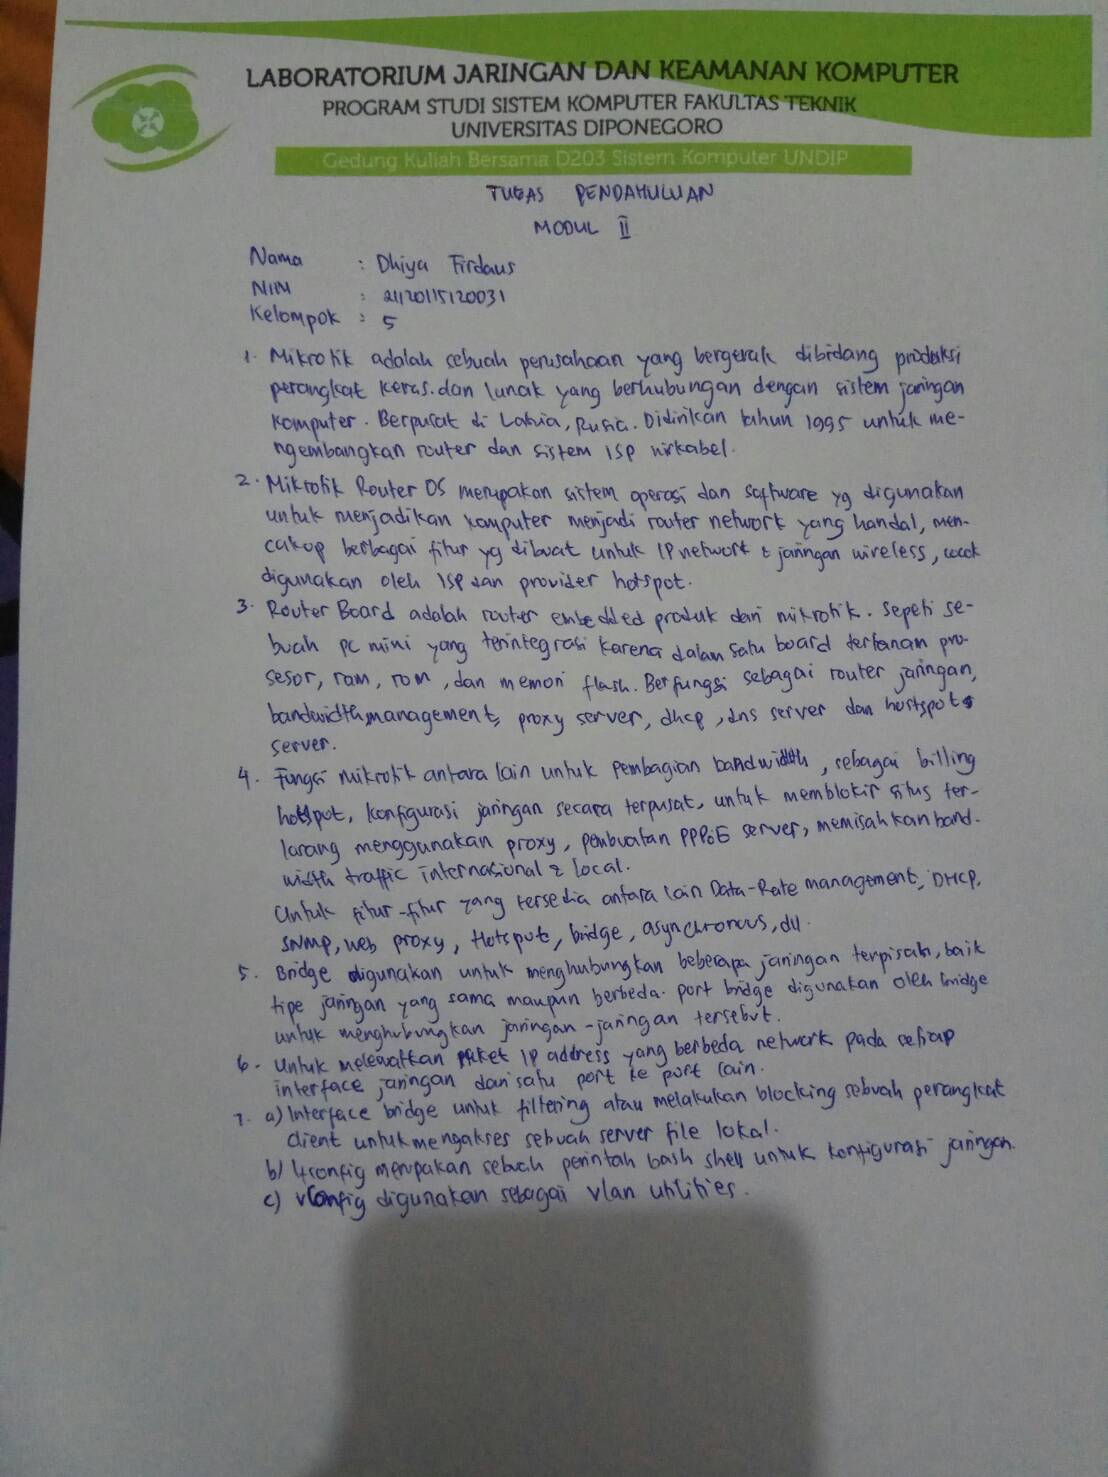 LABORATORIUM JARINGAN DAN KEAMANAN KOMPUTER
PROGRAM STUDI SISTEM KOMPUTER FAKULTAS TEKNIK
UNIVERSITAS DIPONEGORO
Gedung Kuliah Bersama D203 Sistem Komputer UNDIP
TUGAS PENDAHULUAN
MODUL II
Nama : Dhiya Firdaus
NIM : 21120115120031
Kelompok : 5
1. Mikrotik adalah sebuah perusahaan yang bergerak dibidang produksi
perangkat keras dan lunak yang berhubungan dengan sistem jaringan
komputer. Berpusat di Latvia, Rusia. Didirikan tahun 1995 untuk me-
ngembangkan router dan sistem ISP nirkabel.
2. Mikrotik Router OS merupakan sistem operasi dan software yg digunakan
untuk menjadikan komputer menjadi router network yang handal, men-
cakup berbagai fitur yg dibuat untuk IP network & jaringan wireless, cocok
digunakan oleh ISP dan provider hotspot.
3. Router Board adalah router embedded produk dari mikrotik. Seperti se-
buah pc mini yang terintegrasi karena dalam satu board tertanam pro-
sesor, ram, rom, dan memori flash. Berfungsi sebagai router jaringan,
bandwidth management, proxy server, dhcp, dns server dan hostspot
server.
4. Fungsi mikrotik antara lain untuk pembagian bandwidth, sebagai billing
hotspot, konfigurasi jaringan secara terpusat, untuk memblokir situs ter-
larang menggunakan proxy, pembuatan PPPoE server, memisahkan band-
width traffic internasional & local.
Untuk fitur-fitur yang tersedia antara lain Data-Rate management, DHCP,
SNMP, web proxy, Hotspot, bridge, asynchronous, dll.
5. Bridge digunakan untuk menghubungkan beberapa jaringan terpisah, baik
tipe jaringan yang sama maupun berbeda. port bridge digunakan oleh bridge
untuk menghubungkan jaringan-jaringan tersebut.
6. Untuk melewatkan paket IP address yang berbeda network pada setiap
interface jaringan dari satu port ke port lain.
7. a) Interface bridge untuk filtering atau melakukan blocking sebuah perangkat
client untuk mengakses sebuah server file lokal.
b) Ifconfig merupakan sebuah perintah bash shell untuk konfigurasi jaringan.
c) vconfig digunakan sebagai vlan utilities.